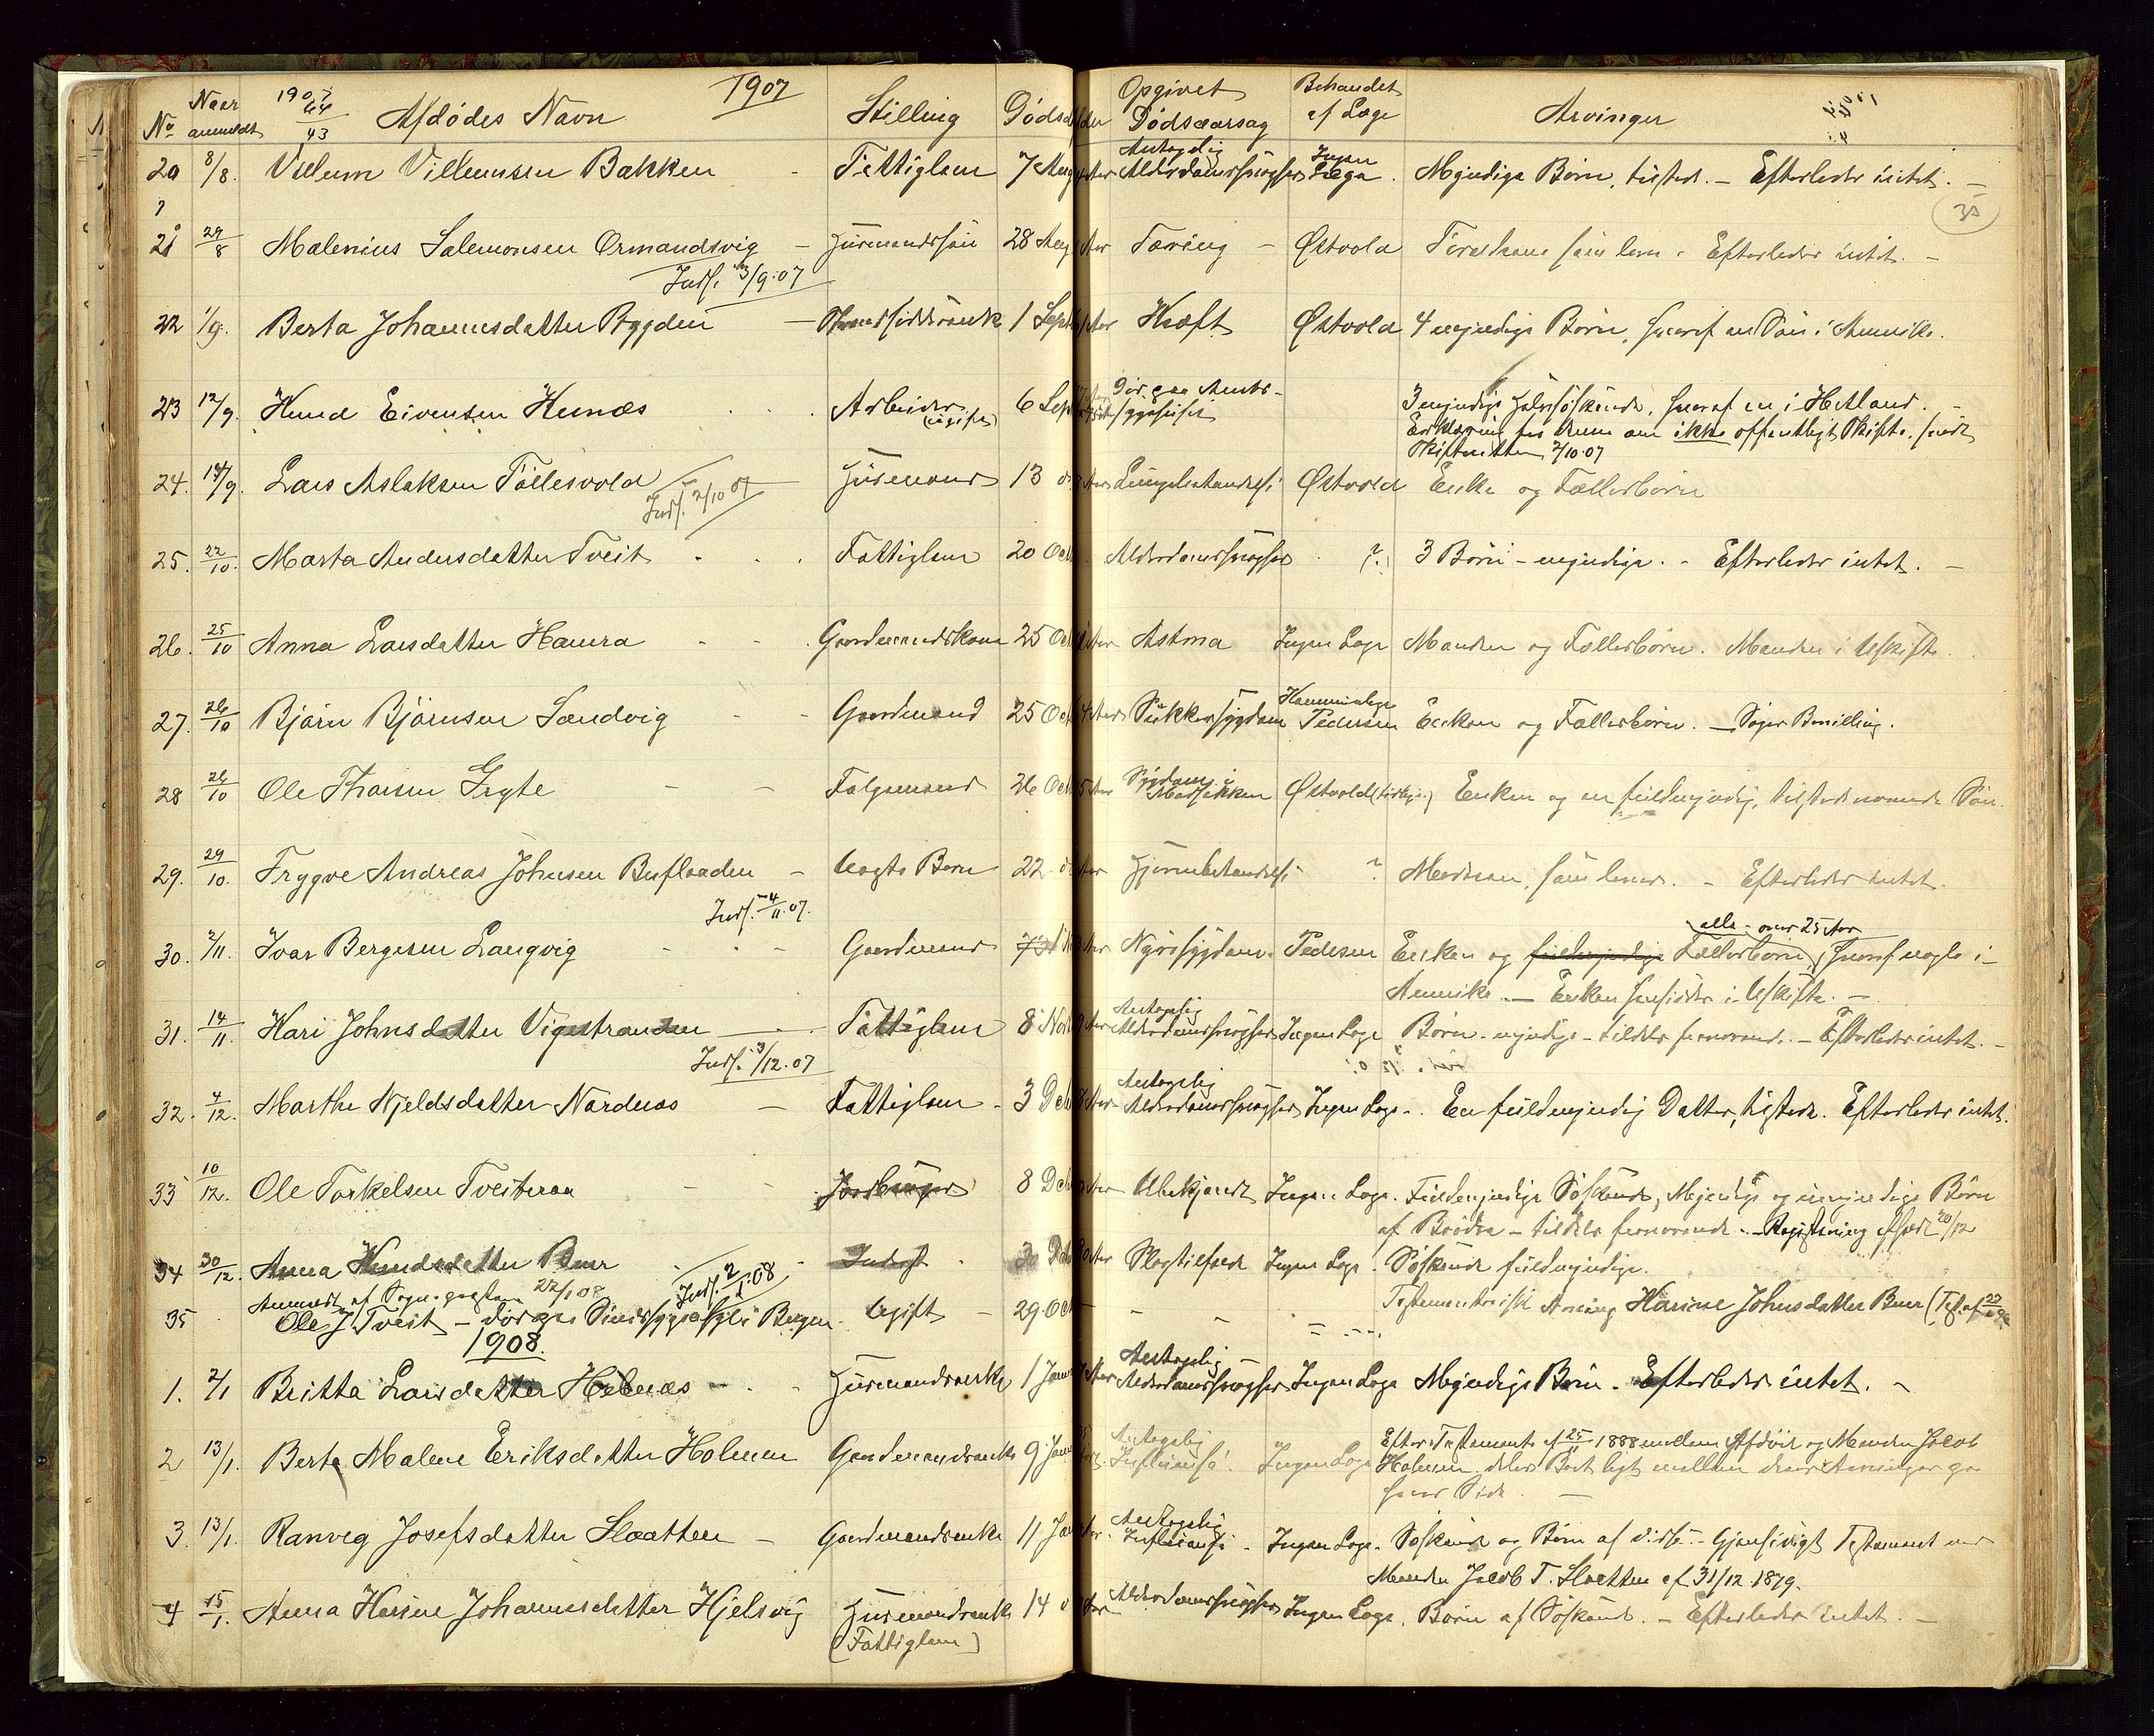 1907
44
43
1907
Opgivet Behandlet
No Naar anmeldt Afdødes Navn Stilling Dødsd Dødsaarsag af Læge Arvinger
20 8/8. Villum Villumsen Bakken - Fattiglem 7 Aug Antagelig Alderdomssvaghed Ingen Læge. Myndige Børn, tilsted. - Efterlader intet. -
35
21 29/8 Malenius Salemonsen Ormandsvig - Husmandssøn 28 Aug Tæring - Østvold Forældrene som lever. Efterlader intet. -
Inds. 3/9.07
22 1/9. Berta Johannesdatter Bygden - 1 Sept Kræft Østvold 4 myndige Børn, hvoraf en Søn i Amerika.
23 12/9. Knud Eivensen Hunæs Arbeider (ugift) 6 Sep Død paa Amts-sygehuset 3 myndige Halvsøskende, hvoraf en i Hetland. -
Erklæring fra dem om ikke offentligt Skifte. sendt
Skifteretten 2/10.07
24. 14/9. Lars Aslaksen Tøllesvold Husmand 13 Lungebetændelse Østvold Enke og Fællesbørn
Inds. 2/10 07
25. 22/10. Marta Andersdatter Tveit Fattiglem 20 Oct Alderdomssvaghed ? 3 Børn - myndige. - Efterlader intet. -
26. 25/10 Anna Larsdatter Hamra - - Gaardmandskone 25 Oct Astma Ingen Læge Manden og Fællesbørn. Manden i Uskifte.
27. 26/10 Bjørn Bjørnsen Sandvig - - Gaardmand 25 Oct Sukkersygdom Kommunelæge Pedersen Enken og Fællesbørn. - Søger Bevilling.
28 26/10 Ole Thorsen Gryte - - Følgemand 26 Oct Sygdom i Mavesækken Østvold Enken og en fuldmyndig, tilstedeværende Søn.
29. 29/10. Trygve Andreas Johnsen Busflaaden - Uægte Barn 22 Hjernebetændelse ? Moderen, som lever. - Efterlader intet.
Inds. 4/11.07.
alle over 25 Aar
30. 2/11. Ivar Bergesen Langvig - - - Gaardmand Nyresygdom Pedersen Enken og fuldmyndige Fællesbørn, hvoraf nogle i
Amerika. - Enken hensidder i Uskifte. -
31. 14/11. Kari Johnsdatter Vigestranden - Fattiglem 8 Nov Antagelig Alderdomssvaghed Ingen Læge Børn - myndige - tildels fraværende. - Efterlader intet. -
Inds. 3/12.07
32. 4/12. Marthe Njeldsdatter Nærdnæs - Fattiglem - 3 Dec Antagelig Alderdomssvaghed Ingen Læge. En fuldmyndig Datter, tilstede. Efterlader intet.
33 10/12. Ole Torkelsen Tveiteraa - - Jordbruger 8 Dec Ubekjendt Ingen Læge. Fuldmyndige Søskende, Myndige og umyndige Børn
af Brødre - tildels fraværende. - Registrering afholdt 20/12
34 30/12. Anna Knudsdatter Buer Inderst 30 Dec Slagtilfælde Ingen Læge. Søskende fuldmyndige.
Inds. 2/1.08
Testamentarisk Arving Karine Johnsdatter Buer
Anmeldt af Sogne-præsten 22/1 08
35 Ole J. Tveit - død paa Sindssygeasyl i Bergen. Ugift - 29 Oct -
1908.
1. 2/1 Britta Larsdatter Helnæs - Husmandsenke 1 Jan Antagelig Alderdomssvaghed Ingen Læge Myndige Børn. Efterlader intet. -
2 13/1. Berta Malene Eriksdatter Holmen Gaardmandsenke 9 Jan Antagelig Influensa Ingen Læge Efter Testament af 25/11 1888 mellem Afdøde og Manden Jacob
Holmen deles Boet ligt mellem deres Arvinger paa
hver Side. -
3. 13/1. Ranveg Josefsdatter Slaatten - Gaardmandsenke 11 Jan Antagelig Influensa - Ingen Læge. Søskende og Børn af disse. - Gjensidigt Testament med
Manden Jacob T. Slaatten af 31/12 1879.
4 15/1. Anna Karine Johannesdatter Hjelsvig Husmandsenke 14 Alderdomssvaghed Ingen Læge. Børn af Søskende. - Efterlader intet. -
(Fattiglem)